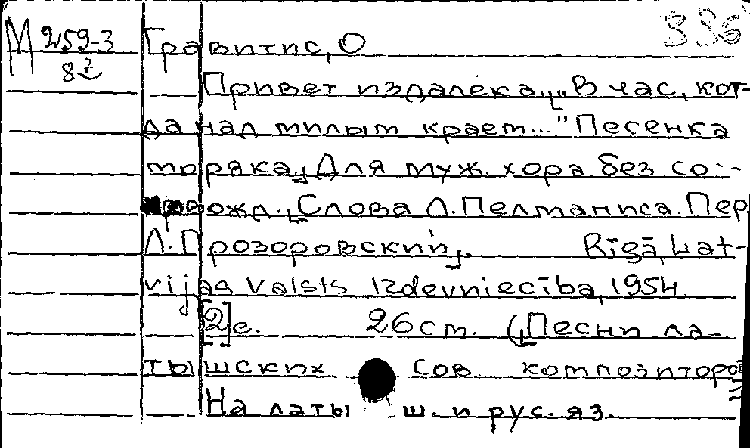 М 259-3 Гравитис, О 336
82
Привет издалека „В час, ког-
да над милым краем..." Песенка
моряка, Для муж. хора без со-
провожд. Слова Л. Пелманиса. Пер
Л. Прозоровский. Rīgā, Lat-
vijas Valsts Izdevniecība, 1954.
[2] с. 26 см. (Песни ла-
тышских сов. композиторо
На латыш. и рус. яз.